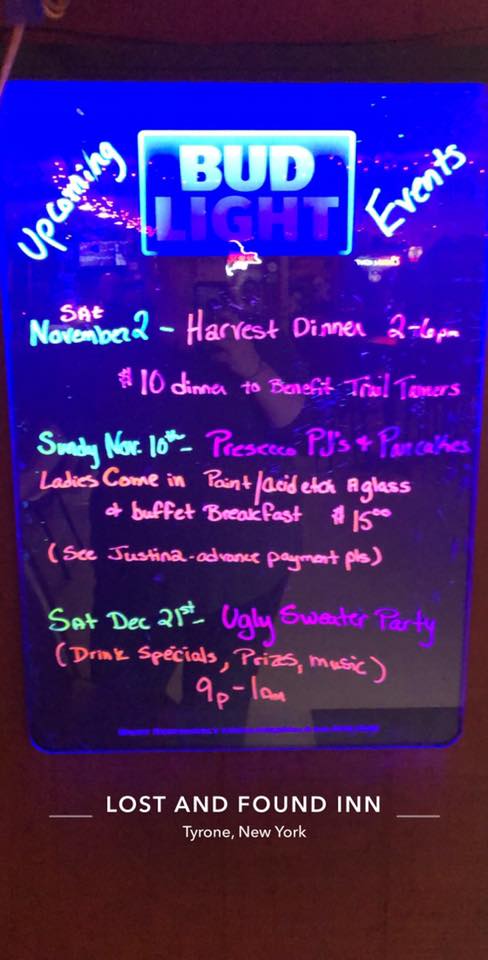 Upcoming
BUD
LIGHT
Events
SAt
November 2 - Harvest Dinner 2-6pm
$10 dinner to Benefit Trail Tamers
Sunday Nov. 10th - Prosecco PJ's + Pancakes
Ladies Come in Paint/acid etch A glass
+ buffet Breakfast $1500
(See Justina-advance payment pls)
SAt Dec 21st - Ugly Sweater Party
(Drink Specials, Prizes, music)
9p-1am
LOST AND FOUND INN
Tyrone, New York